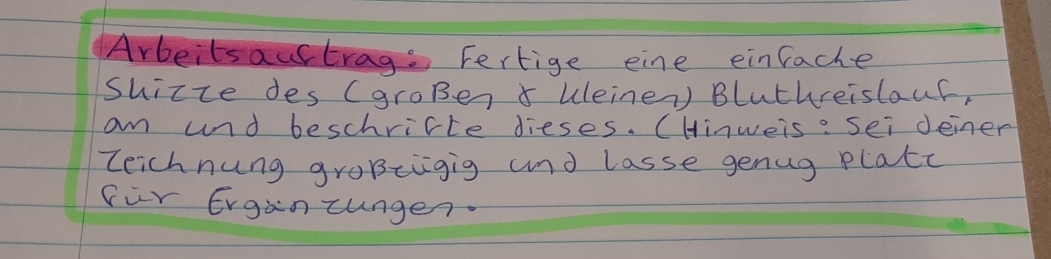 Arbeitsauftrag: Fertige eine einfache
Skizze des (großen & kleinen) Blutkreislauf,
an und beschrifte dieses. (Hinweis: Sei deiner
Zeichnung großzügig und lasse genug Platz
für Ergänzungen.